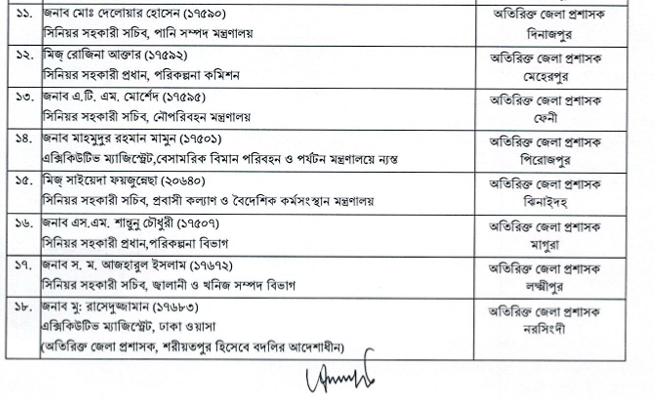 ১১. জনাব মোঃ দেলোয়ার হোসেন (১৭৫৯০) অতিরিক্ত জেলা প্রশাসক
সিনিয়র সহকারী সচিব, পানি সম্পদ মন্ত্রণালয় দিনাজপুর
১২. মিজ্ রোজিনা আক্তার (১৭৫৯২) অতিরিক্ত জেলা প্রশাসক
সিনিয়র সহকারী প্রধান, পরিকল্পনা কমিশন মেহেরপুর
১৩. জনাব এ.টি. এম. মোর্শেদ (১৭৫৯৫) অতিরিক্ত জেলা প্রশাসক
সিনিয়র সহকারী সচিব, নৌপরিবহন মন্ত্রণালয় ফেনী
১৪. জনাব মাহমুদুর রহমান মামুন (১৭৫০১) অতিরিক্ত জেলা প্রশাসক
এক্সিকিউটিভ ম্যাজিস্ট্রেট,বেসামরিক বিমান পরিবহন ও পর্যটন মন্ত্রণালয়ে ন্যস্ত পিরোজপুর
১৫. মিজ্ সাইয়েদা ফয়জুন্নেছা (২০৬৪০) অতিরিক্ত জেলা প্রশাসক
সিনিয়র সহকারী সচিব, প্রবাসী কল্যাণ ও বৈদেশিক কর্মসংস্থান মন্ত্রণালয় ঝিনাইদহ
১৬. জনাব এস.এম. শান্তুনু চৌধুরী (১৭৫০৭) অতিরিক্ত জেলা প্রশাসক
সিনিয়র সহকারী প্রধান,পরিকল্পনা বিভাগ মাগুরা
১৭. জনাব স. ম. আজহারুল ইসলাম (১৭৬৭২) অতিরিক্ত জেলা প্রশাসক
সিনিয়র সহকারী সচিব, জ্বালানী ও খনিজ সম্পদ বিভাগ লক্ষ্মীপুর
১৮. জনাব মু: রাসেদুজ্জামান (১৭৬৮৩) অতিরিক্ত জেলা প্রশাসক
এক্সিকিউটিভ ম্যাজিস্ট্রেট, ঢাকা ওয়াসা নরসিংদী
(অতিরিক্ত জেলা প্রশাসক, শরীয়তপুর হিসেবে বদলির আদেশাধীন)